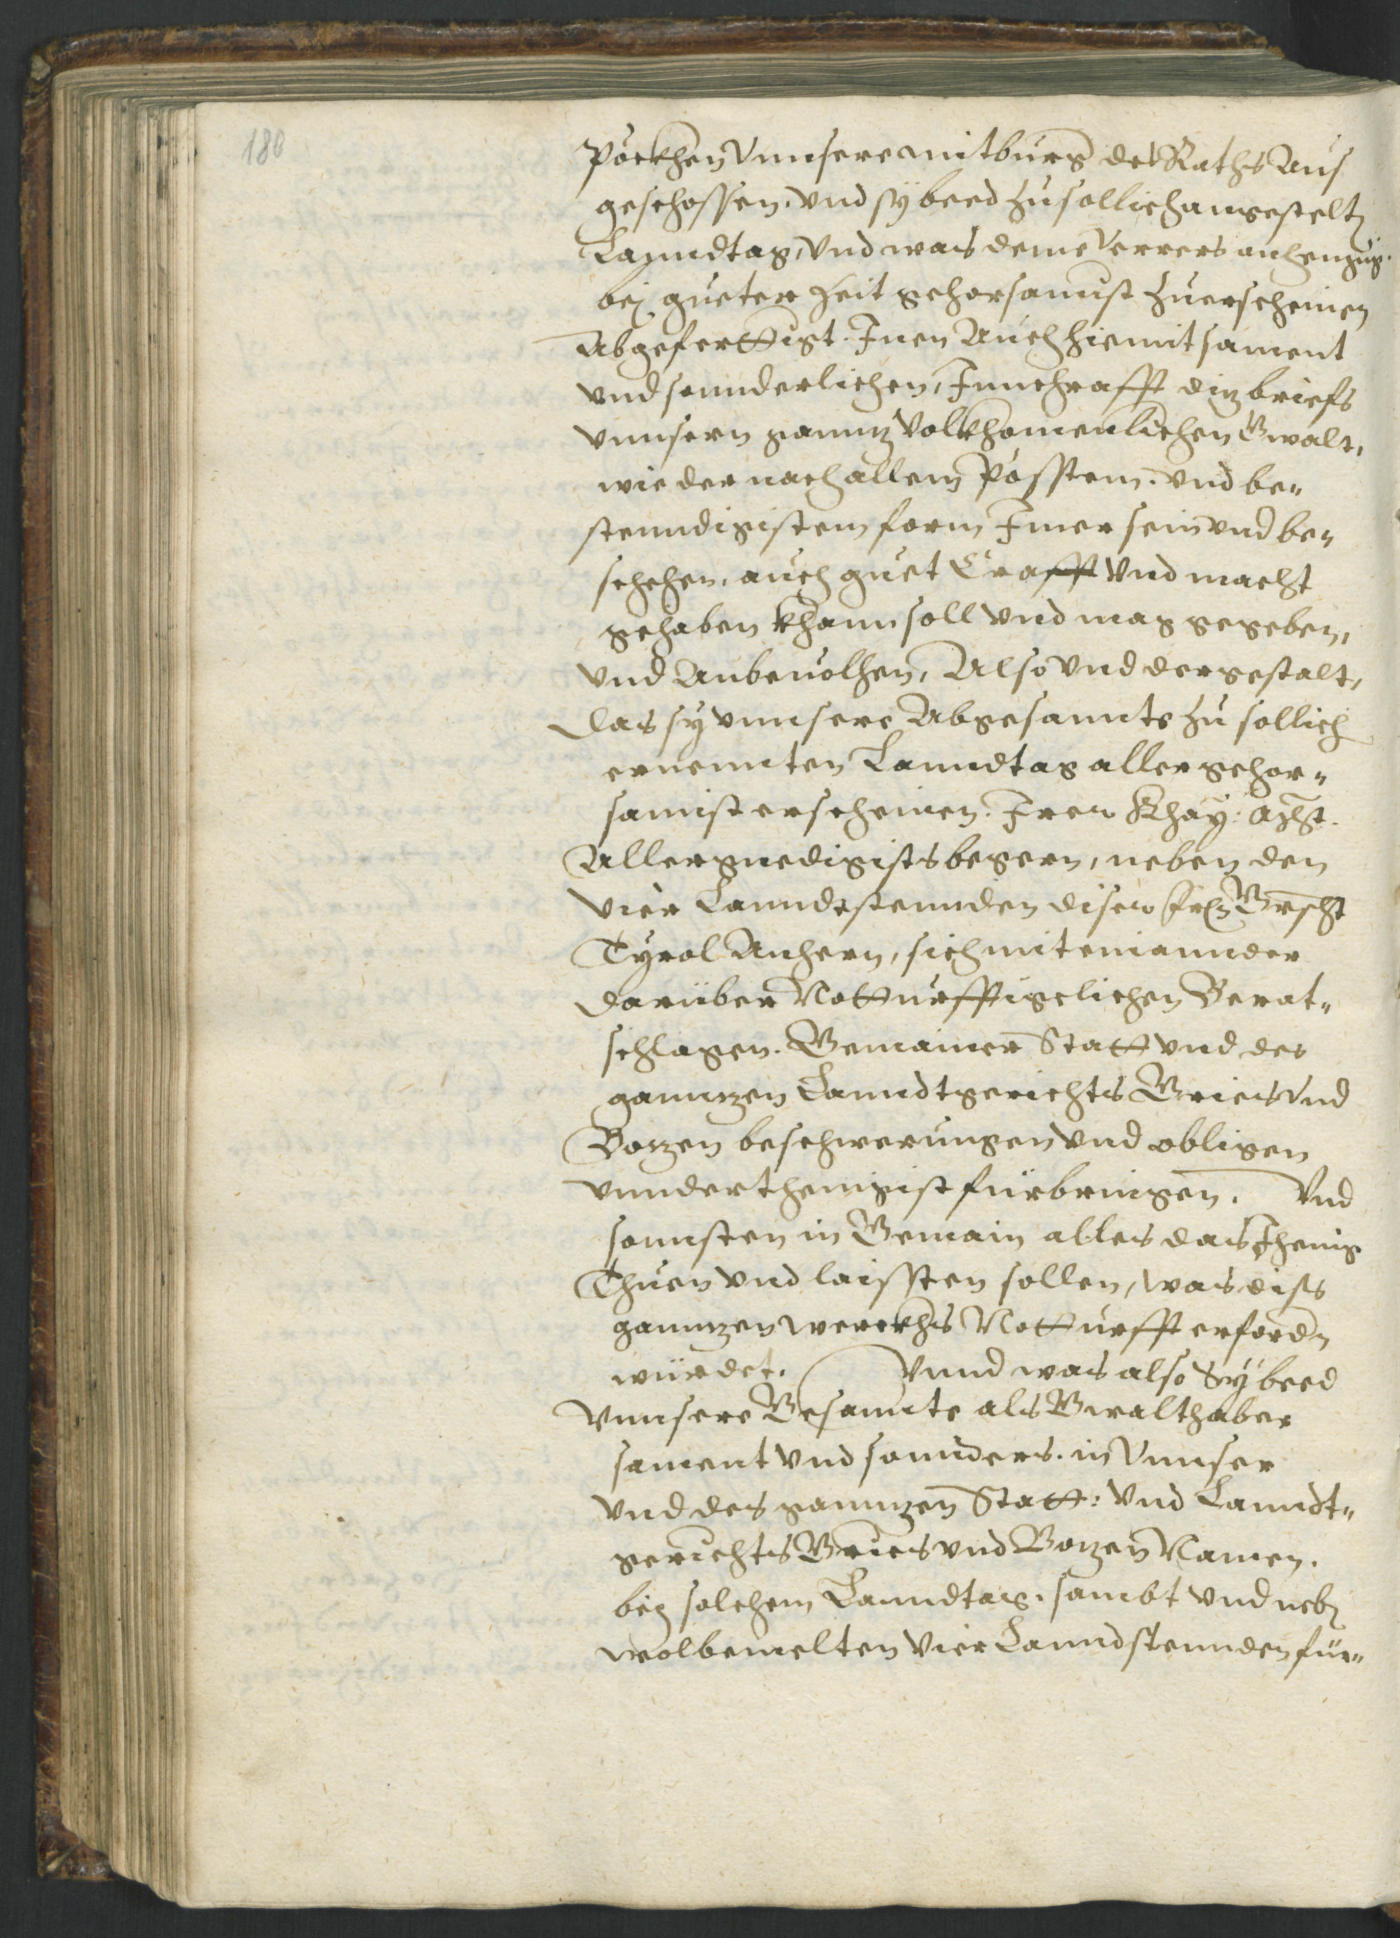 180
Pöckhen Vnnsere mitburg des Raths Aus
geschossen, vnd sy beed zu sollich angestelt
Lanndtag, Vnd was deme Verrers anhenngig.
bej gueter Zeit gehorsamist Zuerscheinen
Abgeferttigt. Inen Auch hiemit sament
vnd sonnderlichen, Inn chrafft diz briefs
vnnsern ganntz Volkhomenlichen Gwalt,
wie der nach allem Pössten. vnd be„
stenndigistem form Imer sein vnd be„
schehen, auch guet Crafft Vnd macht
gehaben khann soll vnd mag gegeben,
vnd Anbeuolhen, Also Vnd dergestalt,
das sy vnnsere Abgesannte zu sollich
ernennten Lanndtag aller gehor„
samist erscheinen. Irer Khay:
Allergnedigists begern, neben den
Vier Lanndtstennden diser Grfschft
Tyrol Anhern, sich mit einannder
darüber Notturfftigclichen Berat„
schlagen. Gemainer Statt vnd des
ganntzen Lanndtgerichts Gries vnd
Bozen beschwerungen vnd obligen
vnnderthenigist fürbringen. Vnd
sonnsten in Gemain alles das Jhenig
Thuen vnd laissten sollen, was diss
ganntzen werckhs Notturfft erfordn
würdet. Vnnd was also Sy beed
Vnnsere Gesannte als Gwalthaber
sament vnd sonnders. in Vnnser
vnd des ganntzen Statt: Vnd Lanndt„
gerichts Gries vnd Bozen Namen.
bej solchem Lanndtag. sambt vnd neb
wolbemelten Vier Lanndstennden für„